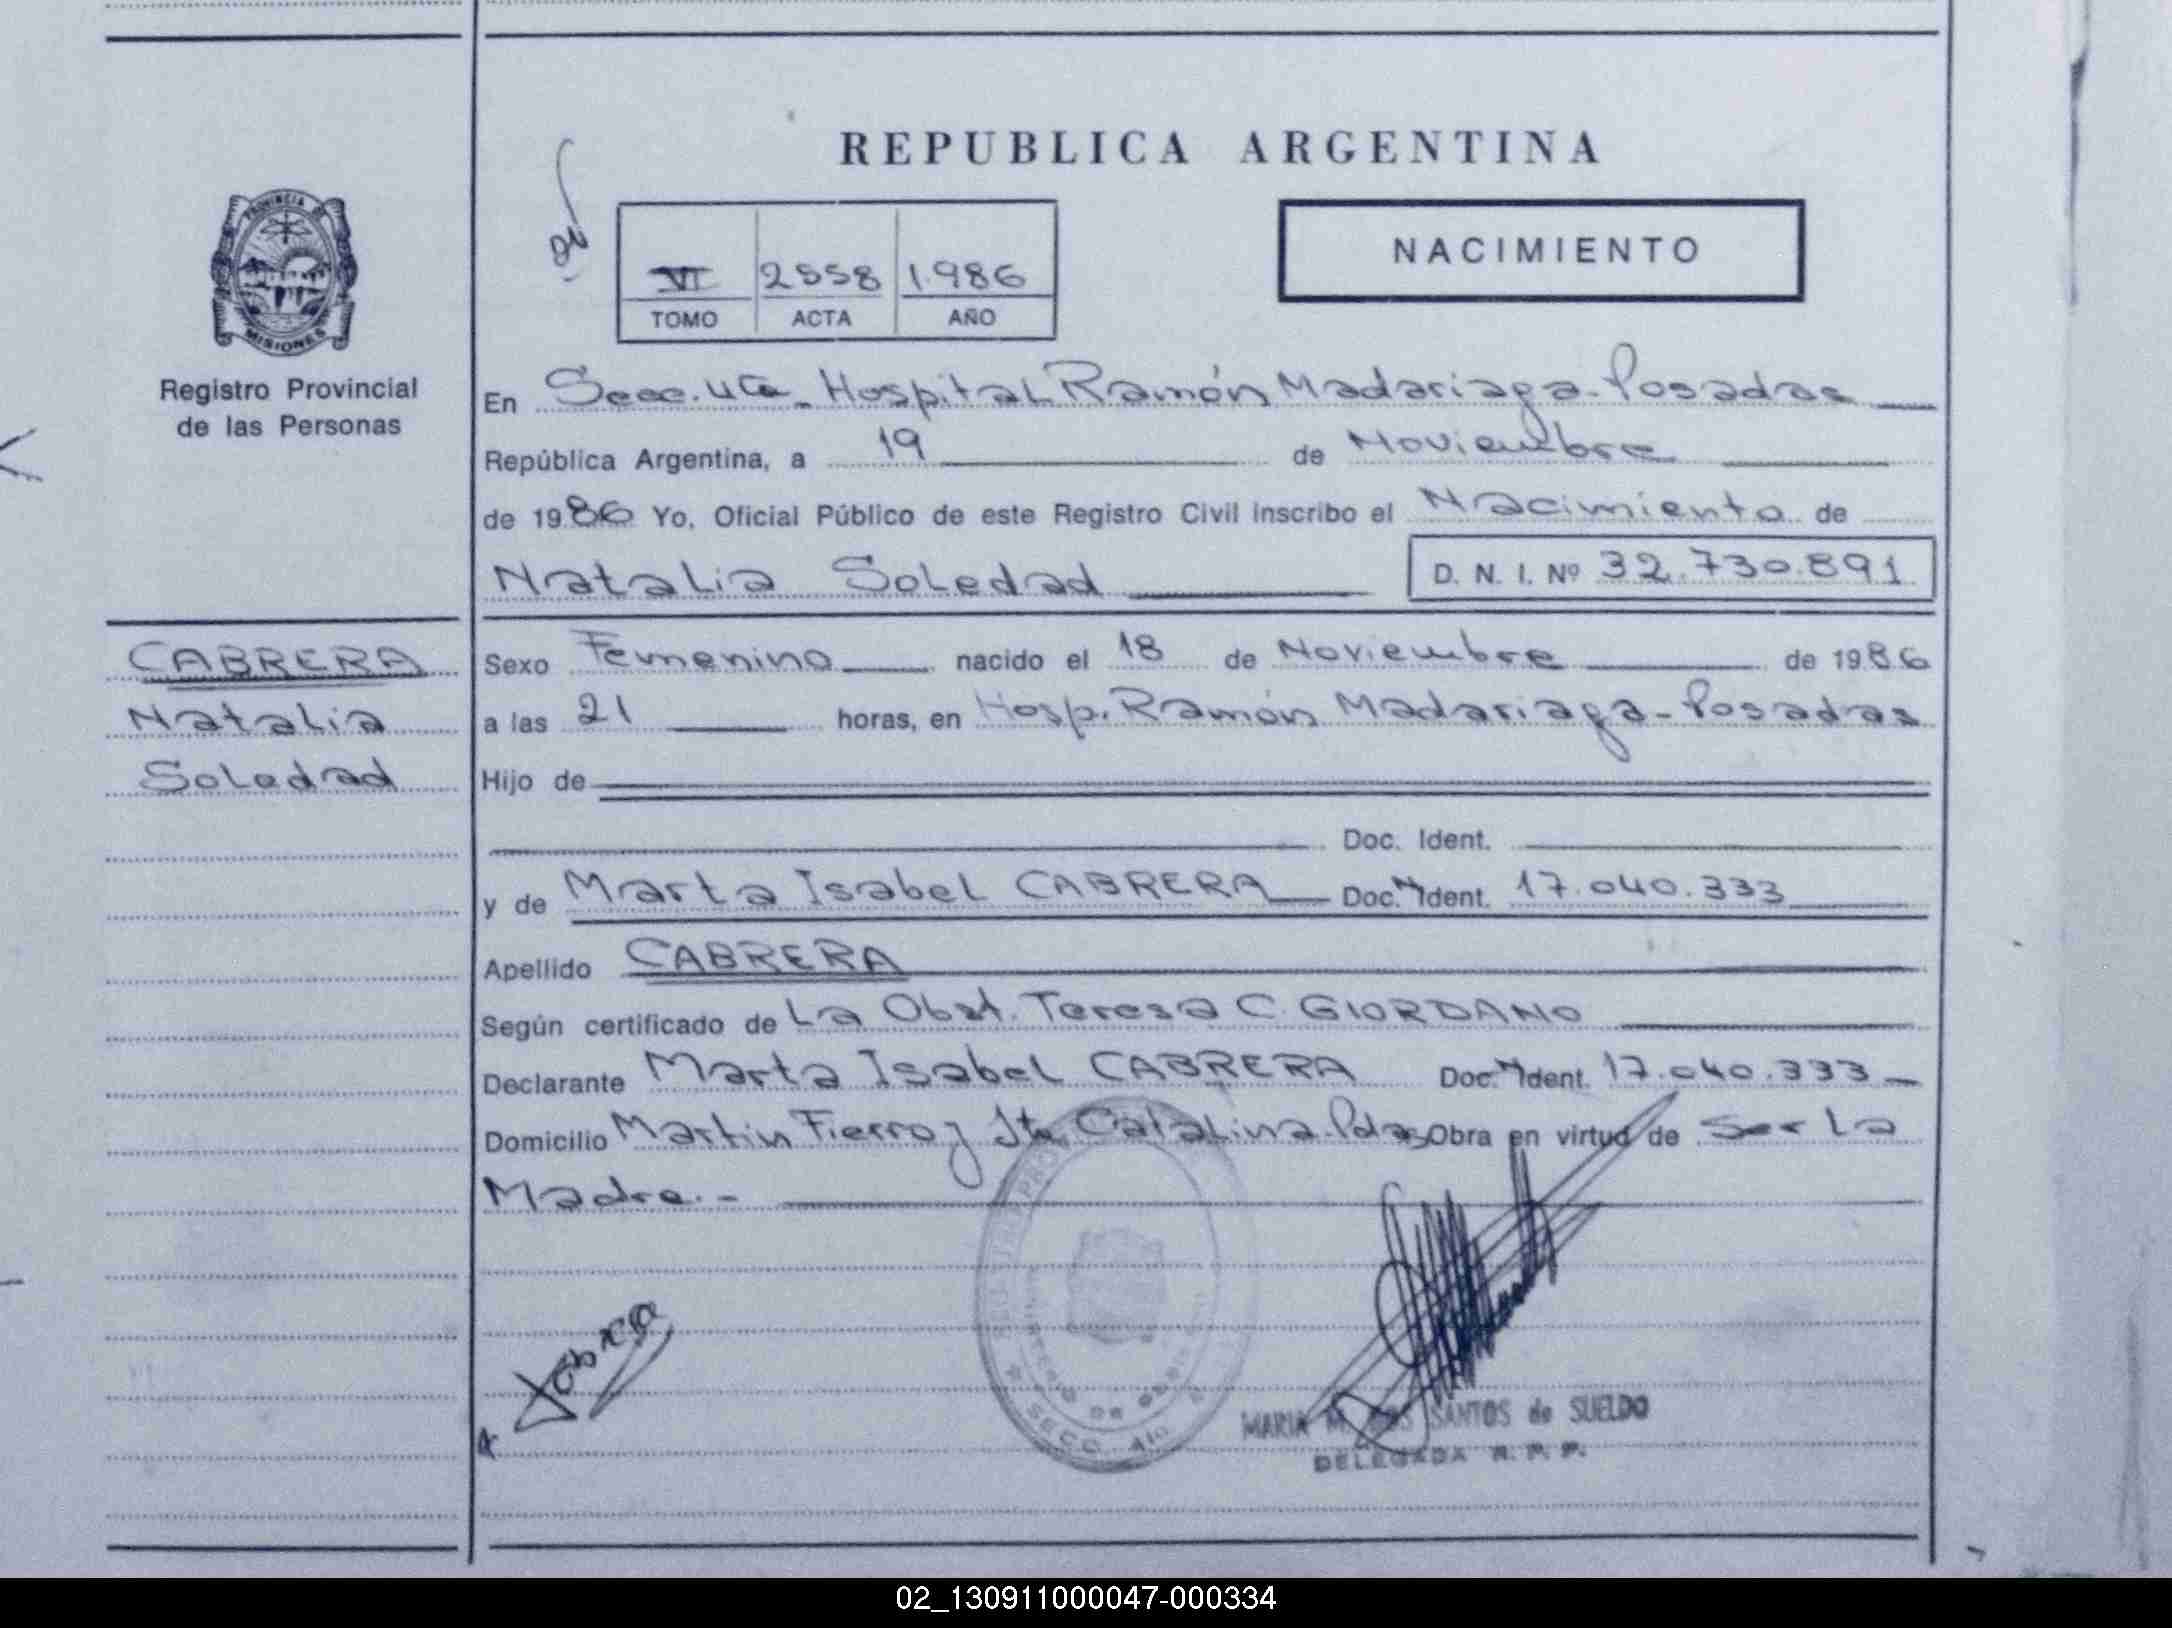 REPUBLICA ARGENTINA
NACIMIENTO
VI 2558 1.986
TOMO ACTA AÑO
PROVINCIA DE
MISIONES
Registro Provincial
de las Personas
En Secc. 4ta - Hospital Ramón Madariaga - Posadas
República Argentina, a 19 de Noviembre
de 1986 Yo, Oficial Público de este Registro Civil inscribo el Nacimiento de
Natalia Soledad D. N. I. Nº 32.730.891
CABRERA
Natalia
Soledad
Sexo Femenino nacido el 18 de Noviembre de 1986
a las 21 horas, en Hosp. Ramón Madariaga - Posadas
Hijo de
Doc. Ident.
y de Marta Isabel CABRERA Doc. Ident. 17.040.333
Apellido CABRERA
Según certificado de La Obst. Teresa C. GIORDANO
Declarante Marta Isabel CABRERA Doc. Ident. 17.040.333 -
Domicilio Martin Fierro y Sta. Catalina - Pdas Obra en virtud de Ser la
Madre. -
MARIA M. DOS SANTOS de SUELDO
DELEGADA R. P. P.
02_130911000047-000334